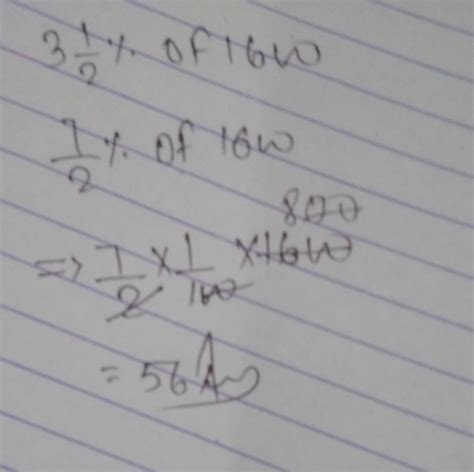 3 1/2 % of 1600
7/2 % of 1600
800
=> 7/2 × 1/100 × 1600
= 56 Ans